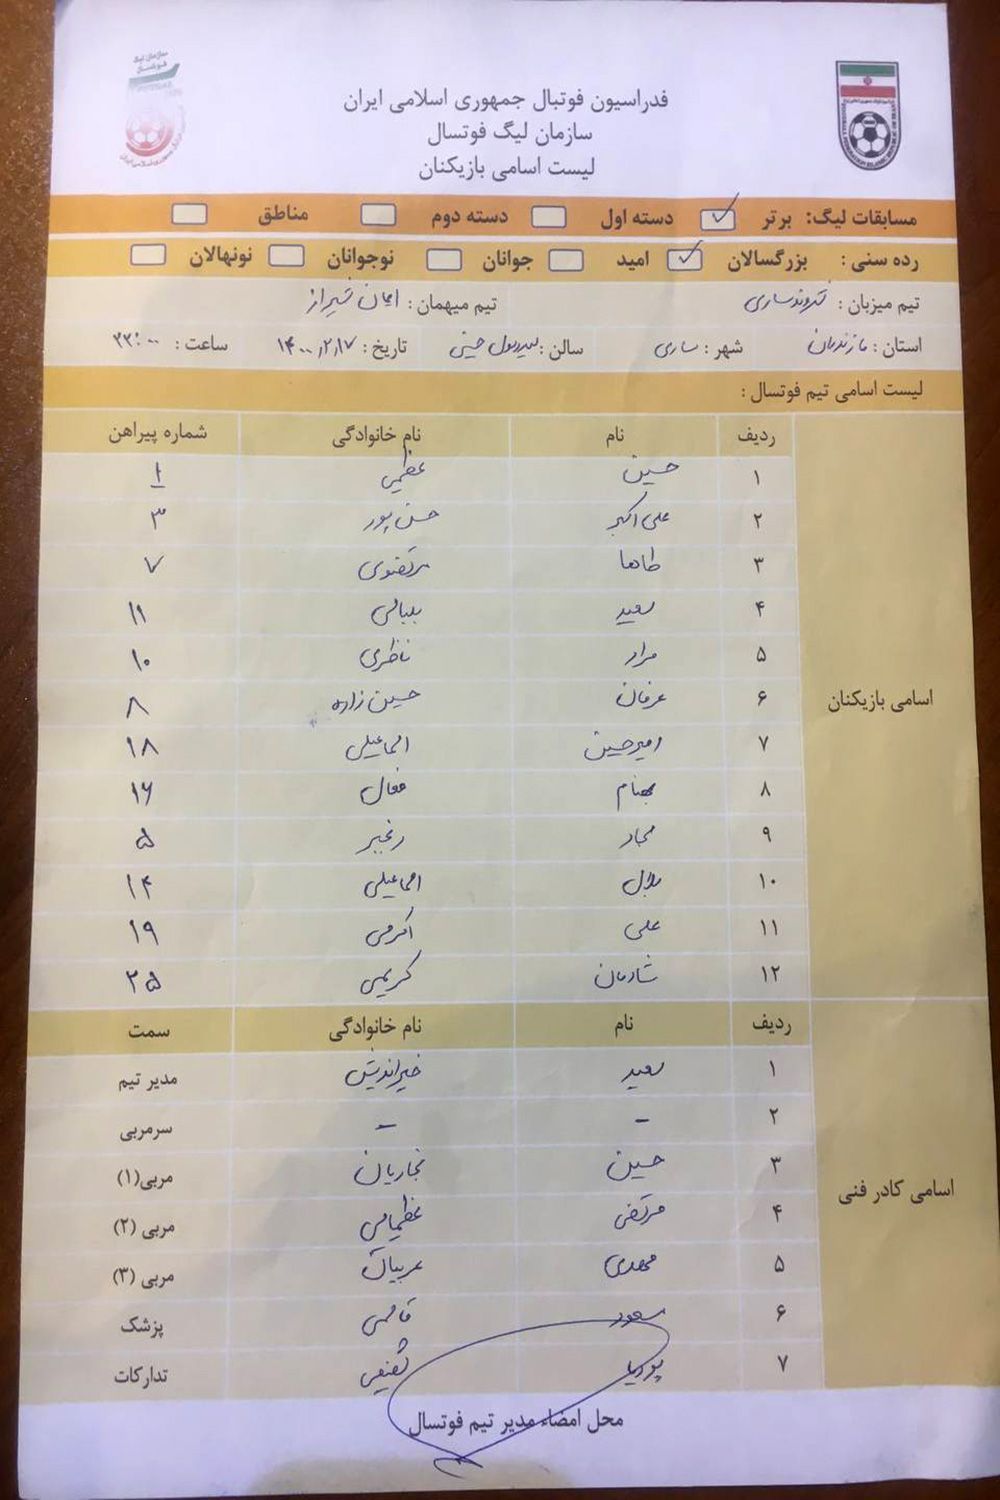 فدراسیون فوتبال جمهوری اسلامی ایران
سازمان لیگ فوتسال
لیست اسامی بازیکنان
مسابقات لیگ: برتر دسته اول دسته دوم مناطق
رده سنی: بزرگسالان امید جوانان نوجوانان نونهالان
تیم میزبان: ساری تیم میهمان: ایمان شیراز
استان: مازندران شهر: ساری سالن: سیدرسول حسینی تاریخ: ۱۴۰۰/۲/۱۷ ساعت: ۲۲:۰۰
لیست اسامی تیم فوتسال:
ردیف نام نام خانوادگی شماره پیراهن
۱ حسین عظیمی ۱
۲ علی اکبر حسن پور ۳
۳ طاها مرتضوی ۷
۴ سعید ۱۱
۵ مراد ناظری ۱۰
۶ عرفان حسین زاده ۸
۷ امیرحسین اسماعیلی ۱۸
۸ بهنام فعال ۱۶
۹ ۵
۱۰ بلال اسماعیلی ۱۴
۱۱ علی اکرمی ۱۹
۱۲ شادمان کریمی ۲۵
اسامی بازیکنان
ردیف نام نام خانوادگی سمت
۱ سعید خیراندیش مدیر تیم
۲ - - سرمربی
۳ حسین نجاریان مربی(۱)
۴ مرتضی عظیمایی مربی (۲)
۵ مهدی عربیان مربی (۳)
۶ مسعود قاسمی پزشک
۷ پوریا تدارکات
اسامی کادر فنی
محل امضاء مدیر تیم فوتسال